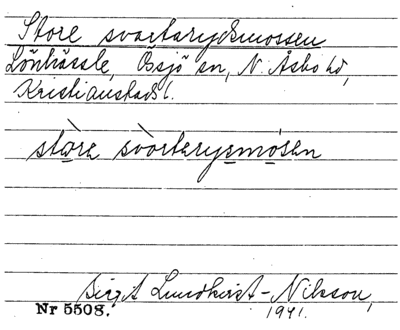 Store svartarydsmossen
Lönhässle, Össjö sn, N. Åsbo hd,
Kristianstads l.
stòre svòrtarysmósen
Birgit Lundkvist-Nilsson,
Nr 5508. 1941.